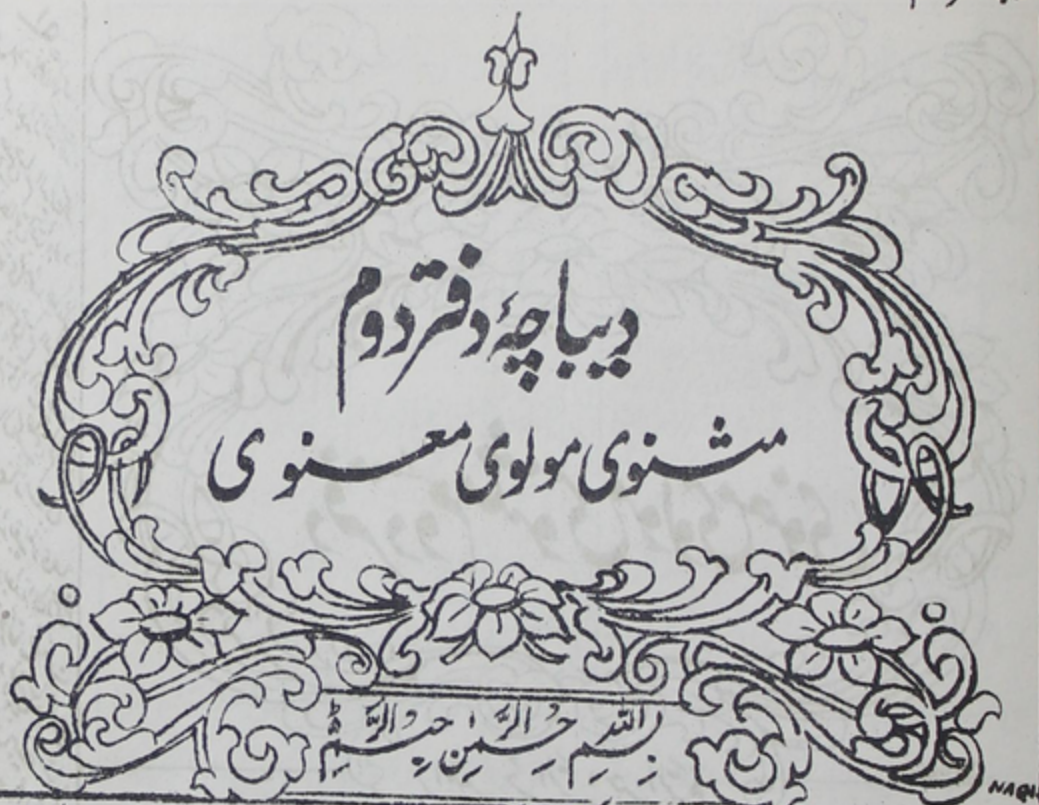 دیباچۂ دفتر دوم
مثنوی مولوی معنوی
بسم الله الرحمن الرحیم